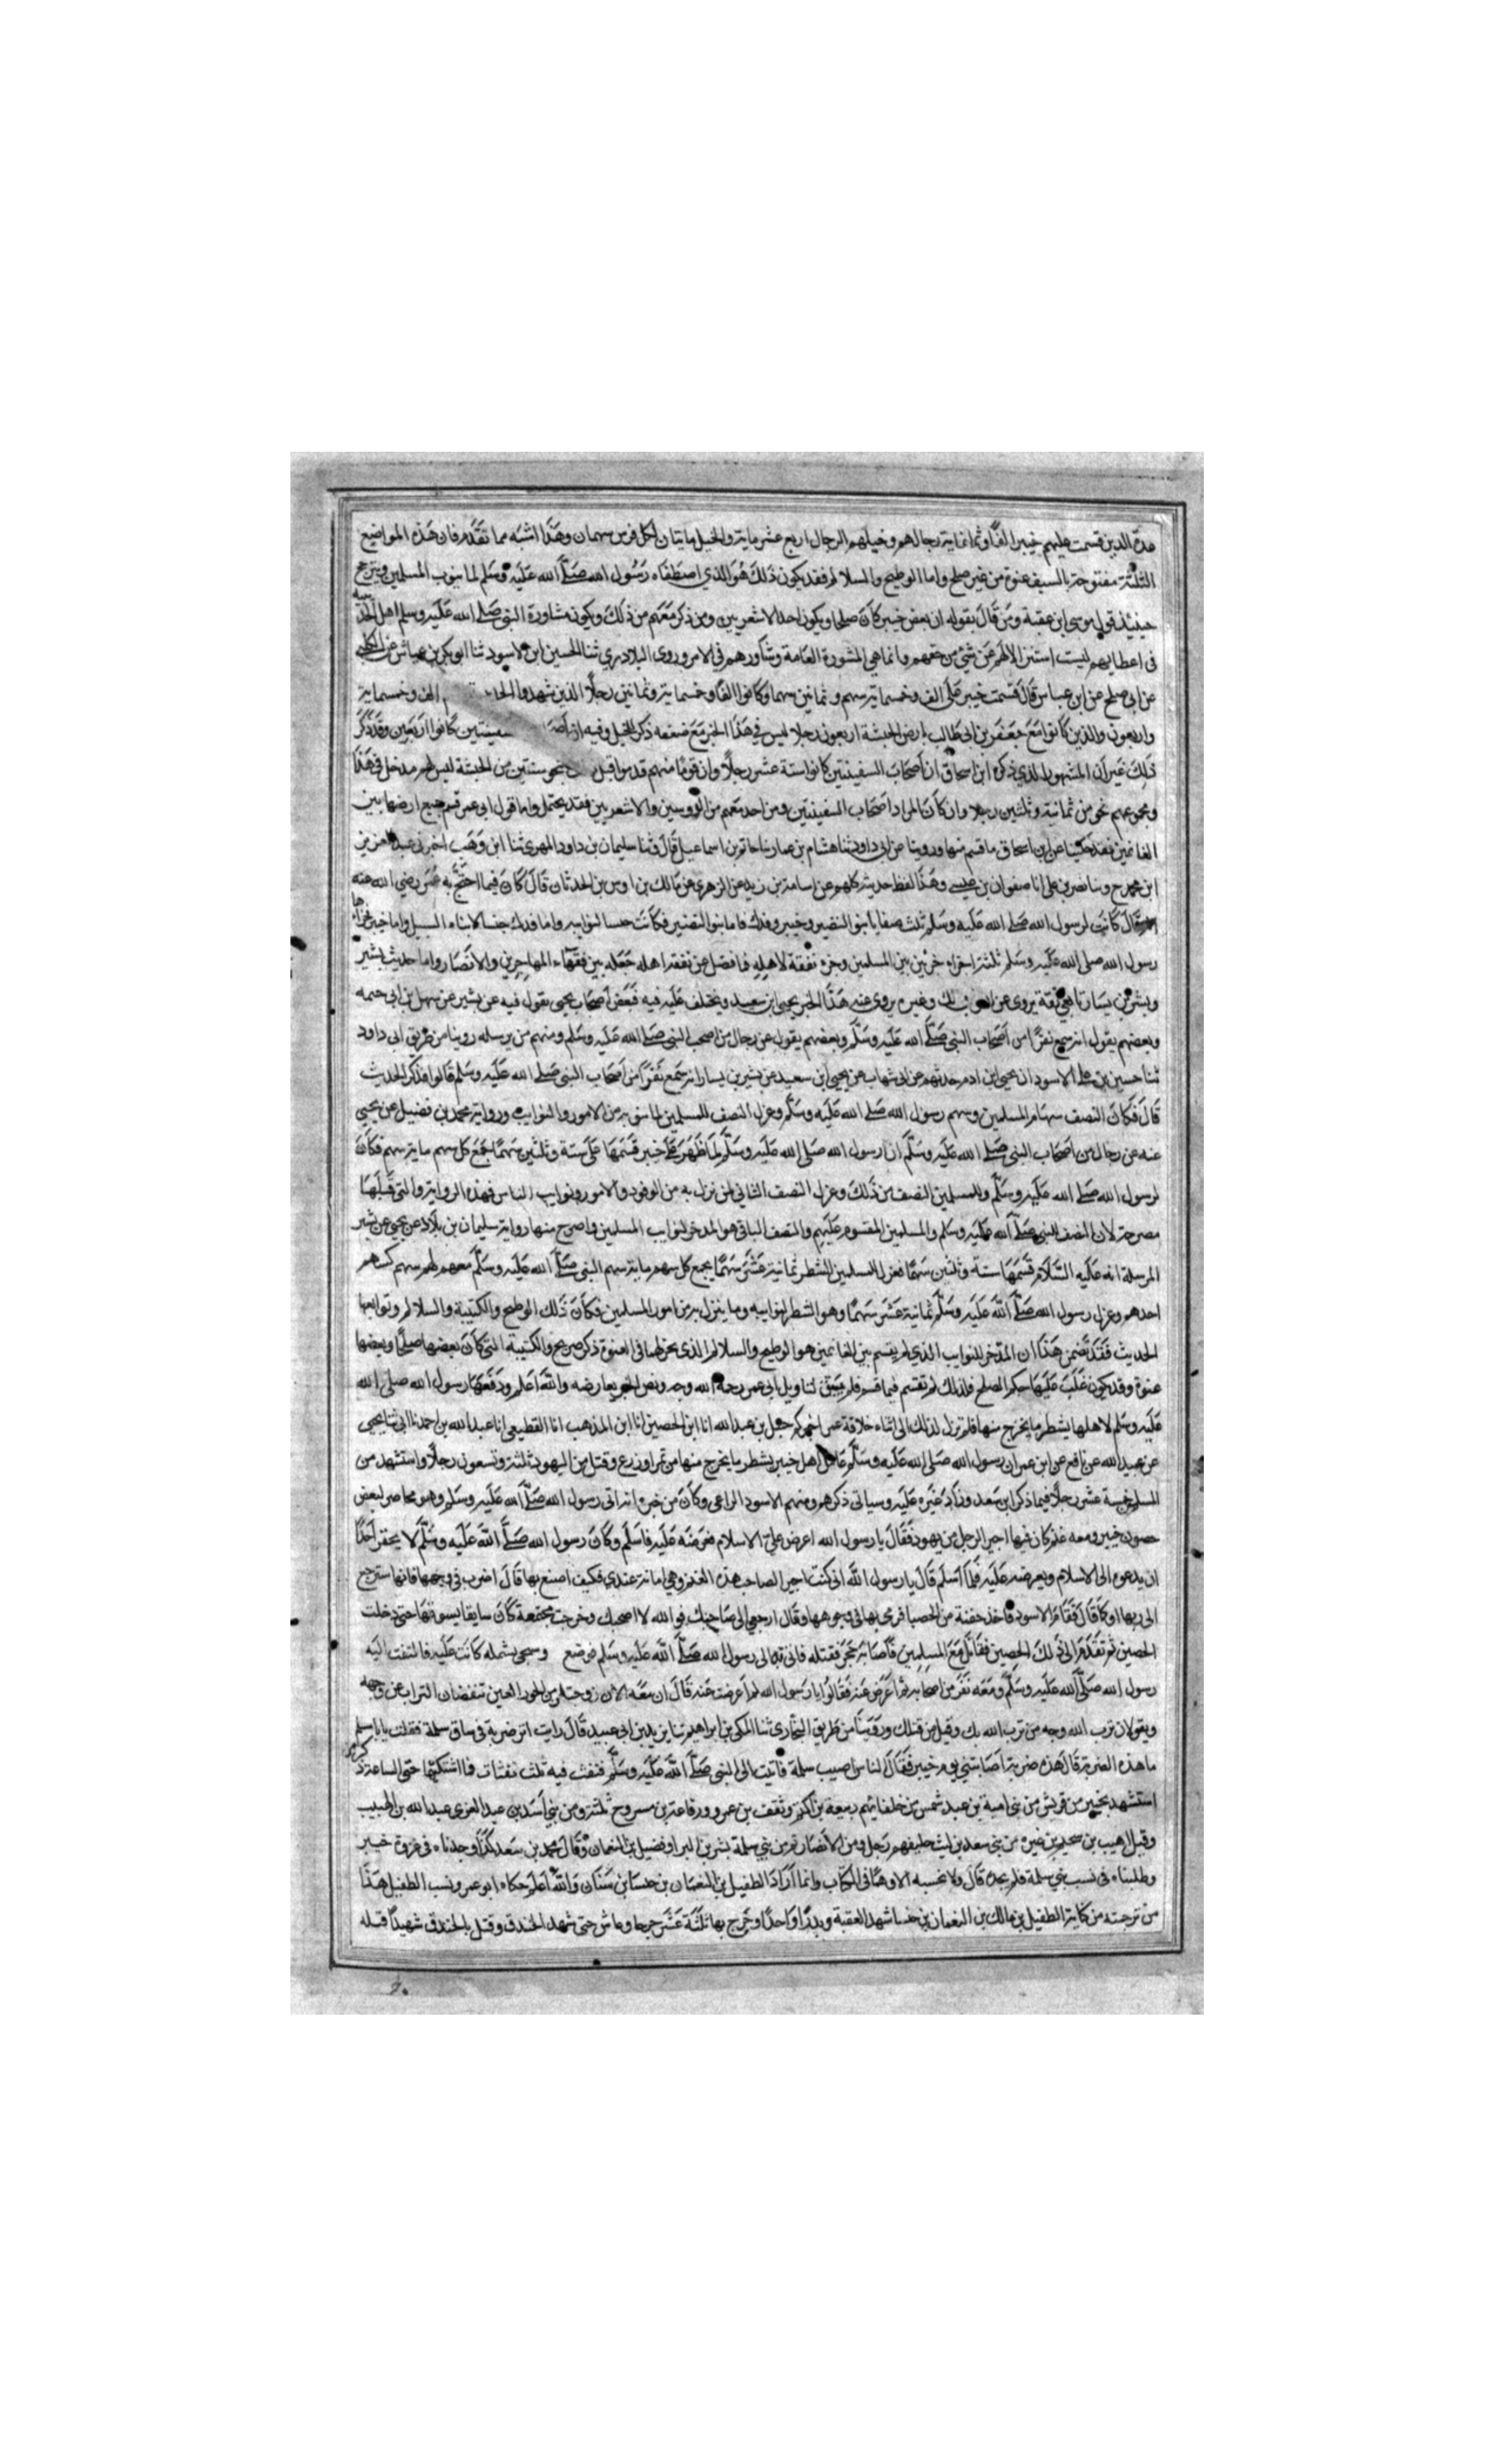 عدة الذين قسمت عليهم خيبر الفا وثمانماية رجالهم وخيلهم الرجال اربع عشر ماية والخيل مايتان لكل فرس سهمان وهذا اشبه مما تقدم فان هذه المواضيع
الثلثة مفتوحة بالسيف عنوة من غير صلح واما الوطيح والسلالم فقد يكون ذلك هو الذي اصطفاه رسول الله صلى الله عليه وسلم لما ينوب المسلمين ويترجح
حينئذ قول موسى ابن عقبة ومن قال بقوله ان بعض خيبر كان صلحا ويكون اخذ الاشعريين ومن ذكر معهم من ذلك ويكون مشاورة النبي صلى الله عليه وسلم اهل الحديبية
في اعطايهم ليست استنزالا لهم عن شئ من حقهم وانما هي المشورة العامة وشاورهم في الامر وروى البلاذري ثنا الحسين ابن الاسود ثنا ابو بكر بن عياش عن الكلبي
عن ابي صلح عن ابن عباس قال قسمت خيبر على الف وخمسماية سهم وثمانين سهما وكانوا الفا وخمسماية وثمانين رجلا الذين شهدوا الف وخمسماية
واربعون والذين كانوا مع جعفر بن ابي طالب بارض الحبشة اربعون رجلا ليس في هذا الخبر مع ضعفه ذكر للخيل وفيه ان سفينتين كانوا اربعين وقد ذكر
ذلك غير ان المشهور الذي ذكره ابن اسحاق ان اصحاب السفينتين كانوا ستة عشر رجلا وان قوما منهم قدموا قبل بنحو سنتين من الحبشة ليس لهم مدخل في هذا
ومجموعهم نحو من ثمانية وثلثين رجلا وان كان المراد اصحاب السفينتين ومن اخذ معهم من الدوسين والاشعريين فقد يحتمل واما قول ابي عمر قسم جميع ارضها بين
الغانمين فقد حكينا عن ابن اسحاق ما قسم منها وروينا عن ابي داود ثنا هشام بن عمار ثنا حاتم بن اسماعيل قال وثنا سليمان بن داود المهري ثنا ابن وهب اخبرني عبد العزيز
ابن محمد ح وثنا نصر بن علي انا صفوان بن عيسى وهذا لفظ حديثه كلهم عن اسامة بن زيد عن الزهري عن مالك بن اوس بن الحدثان قال كان فيما احتج به عمر رضي الله عنه
قال كانت لرسول الله صلى الله عليه وسلم ثلث صفايا بنو النضير وخيبر وفدك فاما بنو النضير فكانت حبسا لنوايبه واما فدك حبسا لابناء السبيل واما خيبر فجزاها
رسول الله صلى الله عليه وسلم ثلثة اجزاء جزئين بين المسلمين وجزء نفقة لاهله فما فضل عن نفقة اهله جعله بين فقراء المهاجرين والانصار واما حديث بشير
وبشير بن يسار تابعي ثقة يروي عن وغيره يروي عنه هذا الخبر يحيى ابن سعيد ويختلف عليه فيه فبعض اصحاب يحيى يقول فيه عن بشير عن سهل بن ابي حثمه
وبعضهم يقول انه سمع نفرا من اصحاب النبي صلى الله عليه وسلم وبعضهم يقول عن رجال من اصحب النبي صلى الله عليه وسلم ومنهم من يرسله روينا من طريق ابي داود
ثنا حسين بن علي الاسود ان يحيى ابن ادم حدثهم عن ابي شهاب عن يحيى ابن سعيد عن بشير بن يسار انه سمع نفرا من اصحاب النبي صلى الله عليه وسلم قالوا فذكر الحديث
قال فكان النصف سهام المسلمين وسهم رسول الله صلى الله عليه وسلم وعزل النصف للمسلمين لما ينوبه من الامور والنوايب ورواية محمد بن فضيل عن يحيى
عنه عن رجال من اصحاب النبي صلى الله عليه وسلم ان رسول الله صلى الله عليه وسلم لما ظهر على خيبر قسمها على ستة وثلثين سهما جمع كل سهم ماية سهم فكان
لرسول الله صلى الله عليه وسلم وللمسلمين النصف من ذلك وعزل النصف الثاني لمن نزل به من الوفود والامور ونوايب الناس فهذه الرواية والتي قبلها
مصرحة لان النصف للنبي صلى الله عليه وسلم والمسلمين المقسوم عليهم والنصف الباقي هو المدخر لنوايب المسلمين واصرح منها رواية سليمان بن بلال عن يحيى عن بشير
المرسلة انه عليه السلام قسمها ستة وثلثين سهما فعزل للمسلمين الشطر ثمانية عشر سهما يجمع كل سهم ماية سهم النبي صلى الله عليه وسلم معهم لهم سهم كسهم
احدهم وعزل رسول الله صلى الله عليه وسلم ثمانية عشر سهما وهو الشطر لنوايبه وما ينزل به من امور المسلمين فكان ذلك الوطيح والكتيبة والسلالم وتوابعها
الحديث فقد تضمن هذا ان المدخر للنوايب الذي لم يقسم بين الغانمين هو الوطيح والسلالم الذي لم يجر لهما في العنوة ذكر صريح والكتيبة التي كان بعضها صلحا وبعضها
عنوة وقد يكون غلب عليها حكم الصلح فلذلك لم تقسم فيما قسم فلم يبق لتاويل ابي عمر رحمه الله وجه ونص الخبر يعارضه والله اعلم ودفعها رسول الله صلى الله
عليه وسلم لاهلها بشطر ما يخرج منها فلم تزل لذلك الى اثناء خلافة عمر اخبركم حنبل بن عبد الله انا ابن الحصين انا ابن المذهب انا القطيعي انا عبد الله بن احمد ثنا ابي ثنا يحيى
عن عبيد الله عن نافع عن ابن عمر ان رسول الله صلى الله عليه وسلم عامل اهل خيبر بشطر ما يخرج منها من تمر او زرع وقتل من اليهود ثلثة وتسعون رجلا واستشهد من
المسلمين خمسة عشر رجلا فيما ذكر ابن سعد وزاد غيره عليه وسياتي ذكرهم ومنهم الاسود الراعي وكان من خبره انه اتى رسول الله صلى الله عليه وسلم وهو محاصر لبعض
حصون خيبر ومعه غنم كان فيها اجيرا لرجل من يهود فقال يا رسول الله اعرض علي الاسلام فعرضه عليه فاسلم وكان رسول الله صلى الله عليه وسلم لا يحقر احدا
ان يدعوه الى الاسلام ويعرضه عليه فلما اسلم قال يا رسول الله اني كنت اجيرا لصاحب هذه الغنم وهي امانة عندي فكيف اصنع بها قال اضرب في وجهها فانها سترجع
الى ربها او كما قال فقام الاسود فاخذ حفنة من الحصبا فرمى بها في وجوهها وقال ارجعي الى صاحبك فوالله لا اصحبك وخرجت مجتمعة كان سايقا يسوقها حتى دخلت
الحصين ثم تقدم الى ذلك الحصين فقاتل مع المسلمين فاصابه حجر فقتله فاتي به الى رسول الله صلى الله عليه وسلم فوضع وسجي بشملة كانت عليه فالتفت اليه
رسول الله صلى الله عليه وسلم ومعه نفر من اصحابه ثم اعرض عنه فقالوا يا رسول الله لم اعرضت عنه قال ان معه الان زوجتيه من الحور العين تنفضان التراب عن وجهه
ويقولان ترب الله وجه من ترب الله بك وقتل من قتلك وروينا من طريق البخاري ثنا المكي بن ابراهيم ثنا يزيد بن ابي عبيد قال رايت اثر ضربة في ساق سلمة فقلت يابا سلم
ما هذه الضربة قال هذه ضربة اصابتني يوم خيبر فقال الناس اصيب سلمة فاتيت الى النبي صلى الله عليه وسلم فنفث فيه ثلث نفثات فما اشتكيتها حتى الساعة ذكر من
استشهد بخيبر من قريش من بني امية بن عبد شمس من خلفائهم ربيعة بن اكثم وثقف بن عمرو ورفاعة بن مسروح ثلثة ومن بني اسد بن عبد العزى عبد الله بن الهبيب
وقيل اهيب بن سحيم بن غيرة من بني سعد بن ليث حليفهم رجل ومن الانصار ثم من بني سلمة بشر بن البرا وفضيل بن النعمان وقال محمد بن سعد كذا وجدناه في غزوة خيبر
وطلبناه في نسب بني سلمة فلم نجده قال ولا نحسبه الا وهما في الكتاب وانما اراد الطفيل بن النعمان بن خنسا بن سنان والله اعلم حكاه ابو عمر ونسب الطفيل هذا
من ترجمته من كتابه الطفيل بن مالك بن النعمان بن خنسا شهد العقبة وبدرا واحدا وجرح بها ثلثة عشر جرحا وعاش حتى شهد الخندق وقتل بالخندق شهيدا قتله